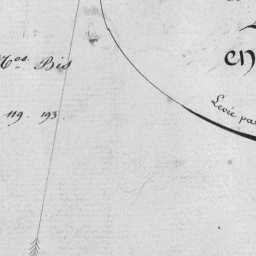 Nos. Bis
119. 193.
en
Levée par